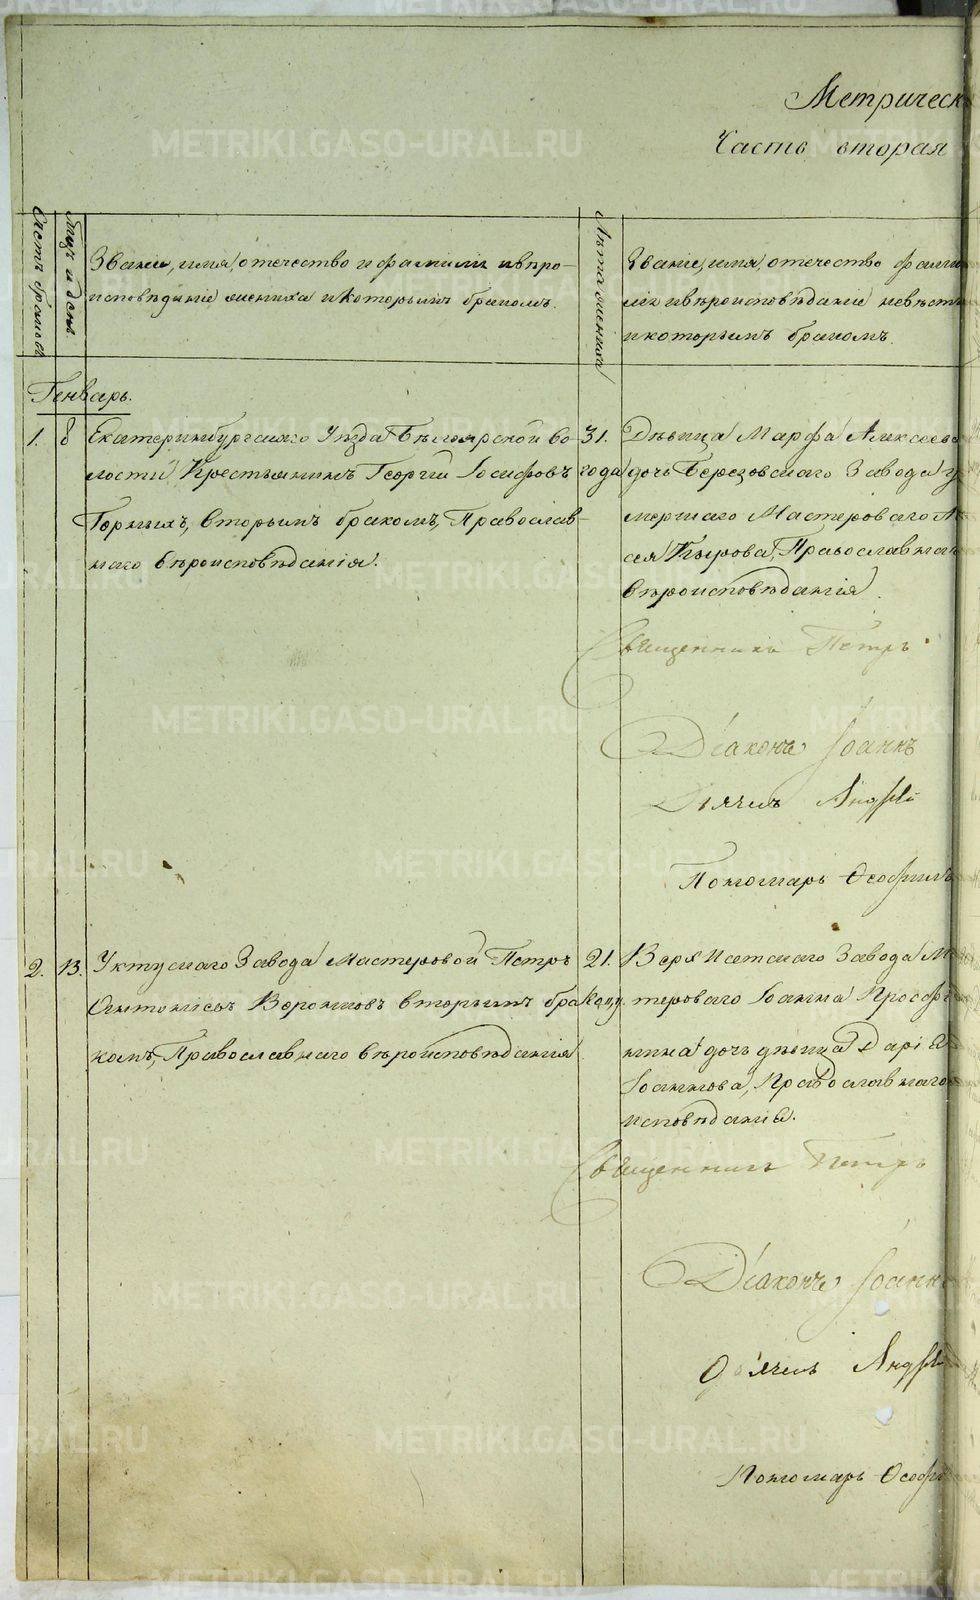 Метрическ
Часть вторая
Счетъ браковъ
Мцъ и день.
Званіе, имя, отечество и фамилія и веро-
исповѣданіе жениха и которымъ бракомъ.
Лѣта жениха
Званіе, имя, отечество фами
лія и вѣроисповѣданіе невѣст
и которымъ бракомъ.
Генварь.
1. 8 Екатеринбургскаго Уѣзда Бѣлоярской во-
лости Крестьянинъ Георгій Іосифовъ
вторымъ бракомъ, Православ-
наго вѣроисповѣданія.
31.
года
Дѣвица Марфа Алексеев
дочь Березовскаго Завода у
мершаго Мастероваго
Православнаг
вѣроисповѣданія.
Священникъ Петръ
Діаконъ Іоаннъ
Дьячекъ Андрей
Пономарь Ѳеофил
2. 13. Уктускаго Завода Мастеровой Петръ
Антоновъ Вороновъ вторымъ бра
комъ, Православнаго вѣроисповѣданія
21.
Верх Исетскаго Завода М
тероваго Іоанна
дочь дѣвица Дарія
Іоаннова, Православнаго
исповѣданія.
Священникъ Петръ
Діаконъ Іоанн
Дьячекъ Андрей
Пономарь Ѳеофи
METRIKI.GASO-URAL.RU